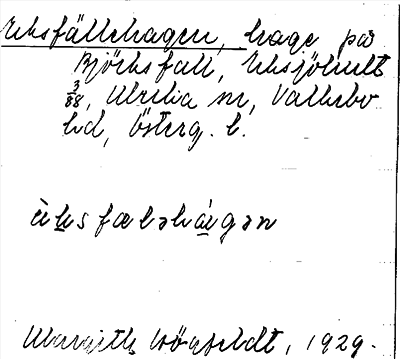 Uksfällehagen, hage på
Björksfall, Eksjöhult
3/88, Ulrika sn, Valkebo
hd, Österg. l.
ùksfæləhágən
Margith Högfeldt, 1929.